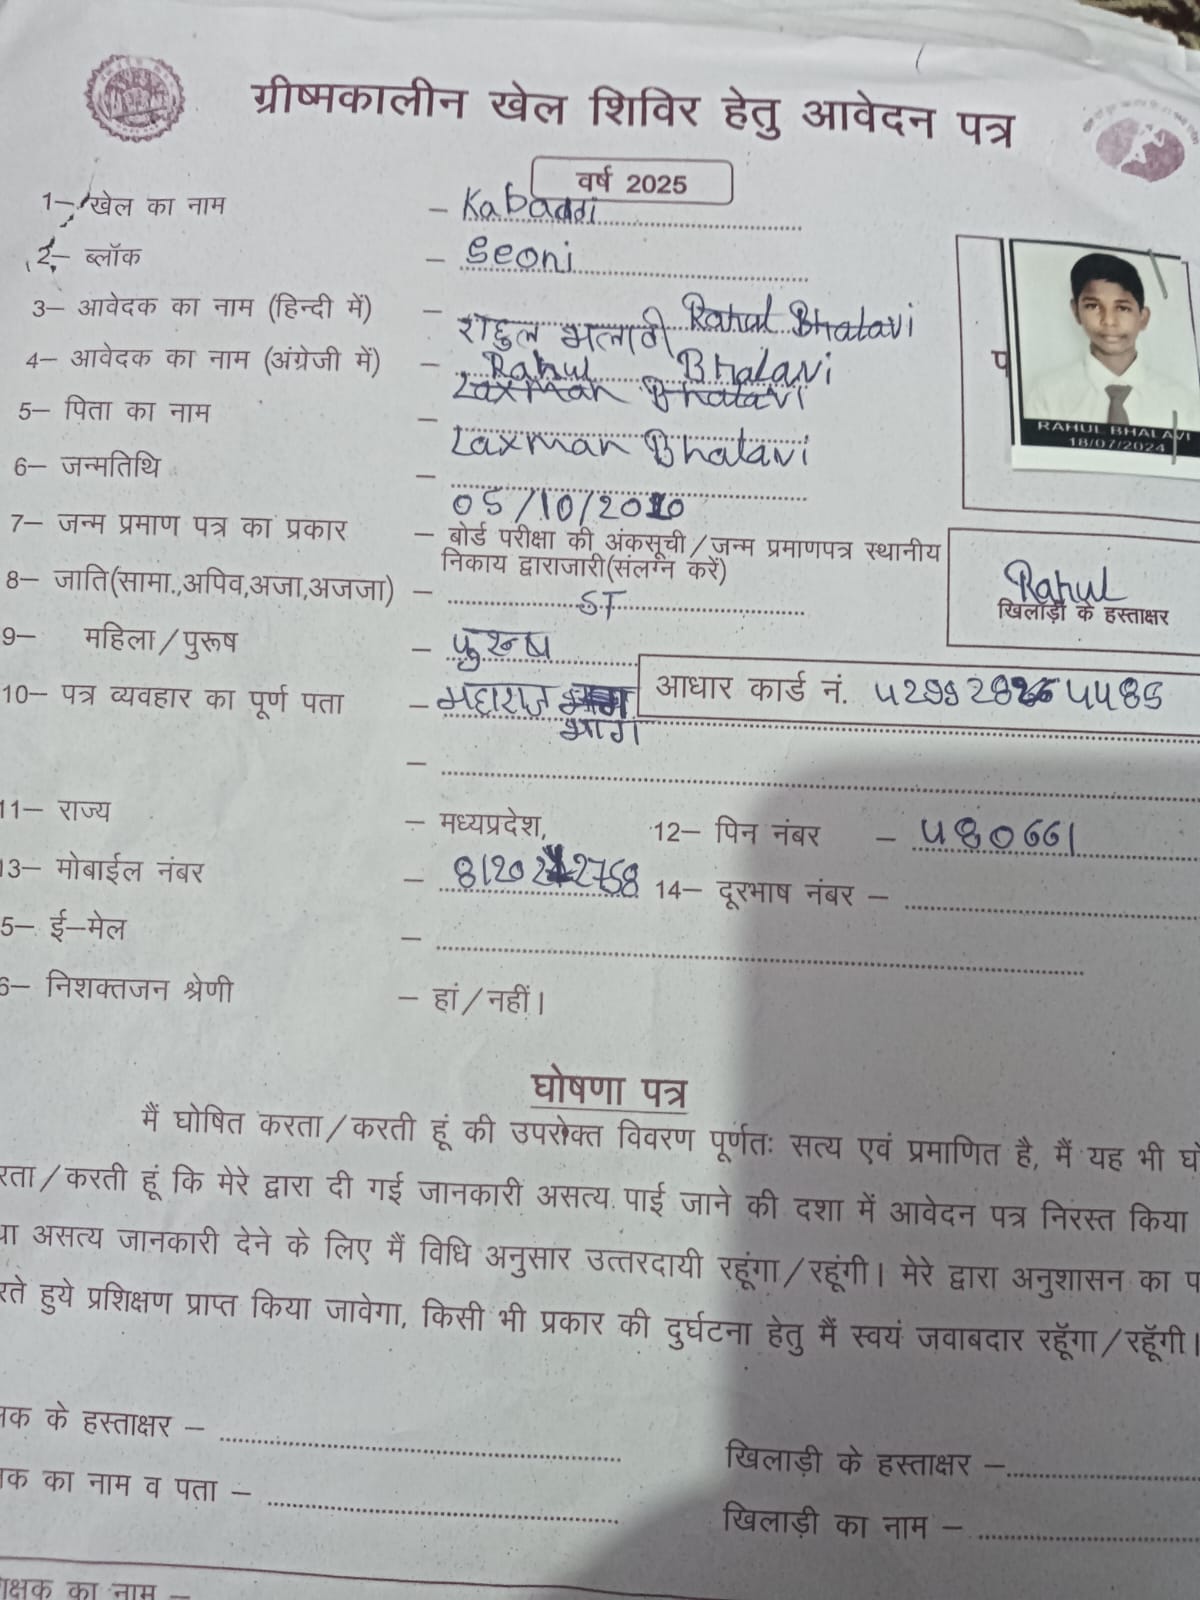 ग्रीष्मकालीन खेल शिविर हेतु आवेदन पत्र
वर्ष 2025
1– खेल का नाम – Kabaddi
2– ब्लॉक – Seoni
3– आवेदक का नाम (हिन्दी में) – राहुल भलावी Rahul Bhalavi
4– आवेदक का नाम (अंग्रेजी में) – Rahul Bhalavi
Laxman Bhalavi
5– पिता का नाम – Laxman Bhalavi
6– जन्मतिथि – 05/10/2010
RAHUL BHALAVI
18/07/2024
7– जन्म प्रमाण पत्र का प्रकार – बोर्ड परीक्षा की अंकसूची/जन्म प्रमाणपत्र स्थानीय
निकाय द्वाराजारी(संलग्न करें)
8– जाति(सामा.,अपिव,अजा,अजजा) – ST
Rahul
खिलाड़ी के हस्ताक्षर
9– महिला/पुरूष – पुरुष
10– पत्र व्यवहार का पूर्ण पता – महाराज भाग
आधार कार्ड नं. 4299 28 4485
11– राज्य – मध्यप्रदेश, 12– पिन नंबर – 480661
13– मोबाईल नंबर – 8120 2758 14– दूरभाष नंबर –
5– ई–मेल –
6– निशक्तजन श्रेणी – हां/नहीं।
घोषणा पत्र
मैं घोषित करता/करती हूं की उपरोक्त विवरण पूर्णतः सत्य एवं प्रमाणित है, मैं यह भी
रता/करती हूं कि मेरे द्वारा दी गई जानकारी असत्य पाई जाने की दशा में आवेदन पत्र निरस्त किया
असत्य जानकारी देने के लिए मैं विधि अनुसार उत्तरदायी रहूंगा/रहूंगी। मेरे द्वारा अनुशासन का
रते हुये प्रशिक्षण प्राप्त किया जावेगा, किसी भी प्रकार की दुर्घटना हेतु मैं स्वयं जवाबदार रहूँगा/रहूँगी।
क के हस्ताक्षर –
खिलाड़ी के हस्ताक्षर –
क का नाम व पता –
खिलाड़ी का नाम –
क्षक का नाम –